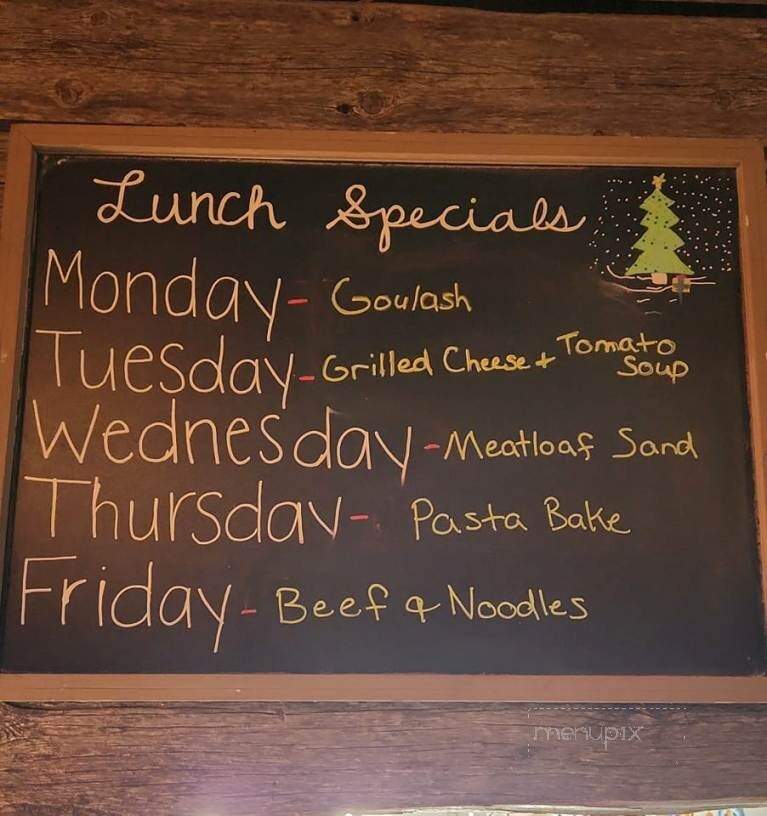 Lunch Specials
Monday - Goulash
Tuesday - Grilled Cheese + Tomato Soup
Wednesday - Meatloaf Sand
Thursday - Pasta Bake
Friday - Beef & Noodles
menupix